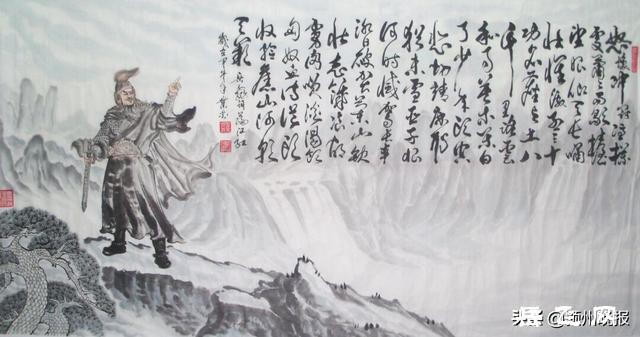 怒发冲冠凭栏
处潇潇雨歇抬
望眼仰天长啸
壮怀激烈三十
功名尘与土八
千里路云
和月莫等闲白
了少年头空
悲切靖康耻
犹未雪臣子恨
何时灭驾长车
踏破贺兰山缺
壮志饥餐胡
虏肉笑谈渴饮
匈奴血待从头
收拾旧山河朝
天阙 岳飞词满江红
岁在甲午年
头条 @颍州晚报